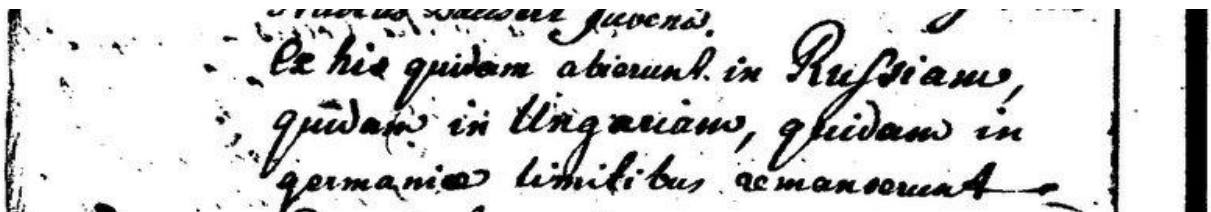 Juvenis.
Ex his quidam abierunt in Russiam,
quidam in Ungariam, quidam in
germaniæ limitibus remanserunt